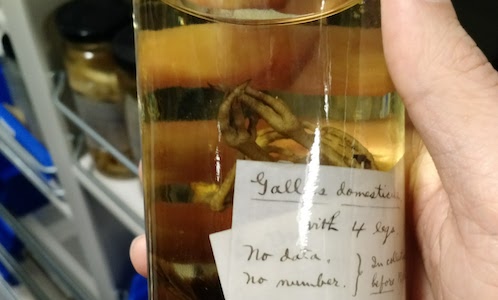 Gallus domestic
with 4 legs
No data. } In
No number. } before